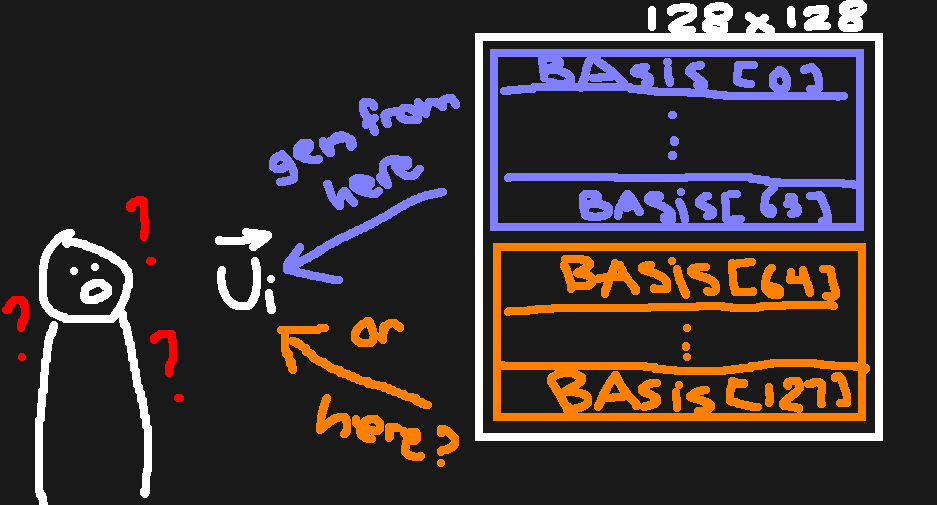 128 x 128
BASis [0]
⋮
BASis [63]
BASis [64]
⋮
BASis [127]
gen from
here
Ui
or
here?
?
?
?